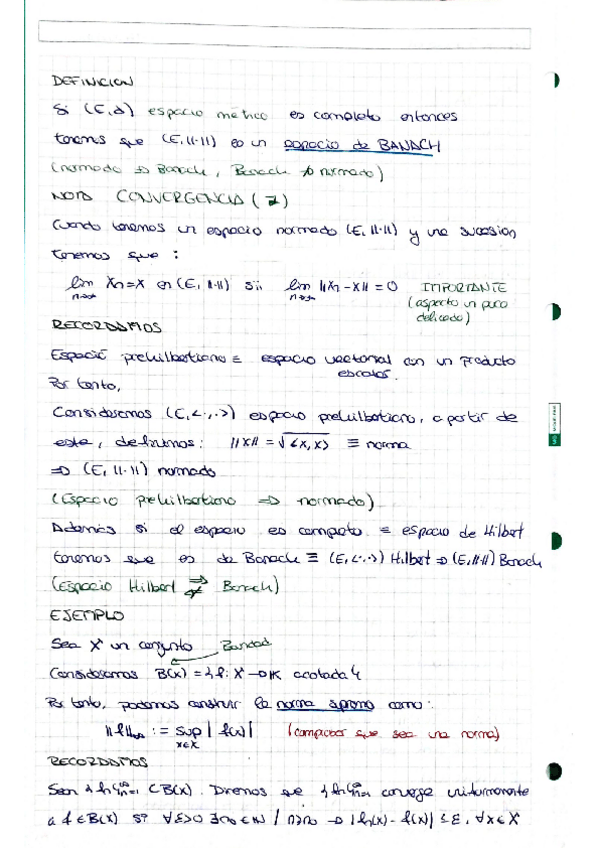 DEFINICION
Si (E,d) espacio métrico es completo entonces
tenemos que (E, ||·||) es un espacio de BANACH
(normado ⇒ Banach, Banach ⇏ normado)
NOTA CONVERGENCIA (
Cuando tenemos un espacio normado (E, ||·||) y una sucesion
tenemos que :
lim Xn = X en (E, ||·||) sii lim ||Xn - X|| = 0 IMPORTANTE
n→∞ n→∞ (aspecto un poco
delicado)
RECORDAMOS
Espacio prehilbertiano ≡ espacio vectorial con un producto
escalar.
Por tanto,
Consideramos (E, <·,·>) espacio prehilbertiano, a partir de
este, definimos: ||X|| = √<x,x> ≡ norma
⇒ (E, ||·||) normado
(Espacio prehilbertiano ⇒ normado)
Además si el espacio es completo ≡ espacio de Hilbert
tenemos que es de Banach ≡ (E, <·,·>) Hilbert ⇒ (E, ||·||) Banach
(Espacio Hilbert ⇒ ⇍ Banach)
EJEMPLO
Sea X un conjunto
Consideramos B(X) = {f: X → K acotada}
Por tanto, podemos construir la norma suprema como:
||f||∞ := sup |f(x)| (comprobar que sea una norma)
x∈X
RECORDAMOS
Sean {fn}∞n=1 ⊂ B(X). Diremos que {fn}∞n=1 converge uniformemente
a f ∈ B(X) si ∀ε>0 ∃n0 ∈ N / n≥n0 → |fn(x) - f(x)| ≤ ε, ∀x∈X